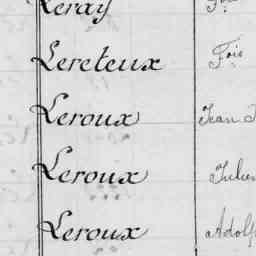 Leray
Lereteux Fois
Leroux Jean
Leroux Julien
Leroux Adolp